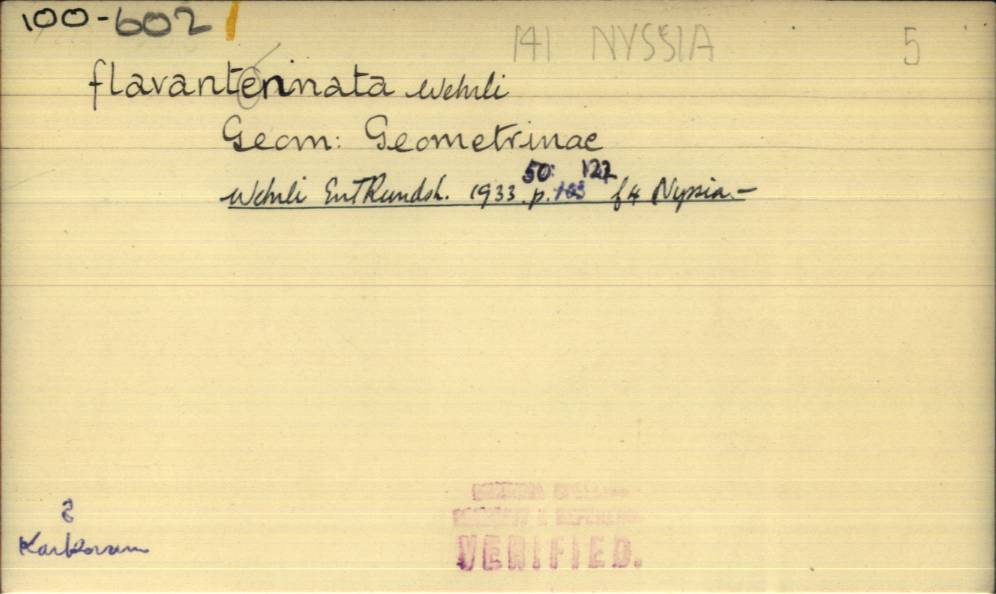 100-602
141 NYSSIA 5
flavanteninata Wehrli
Geom: Geometrinae
Wehrli Ent Rundsh. 1933. 50: p. 103 127 f4 Nyssia.—
VERIFIED.
Karkoram